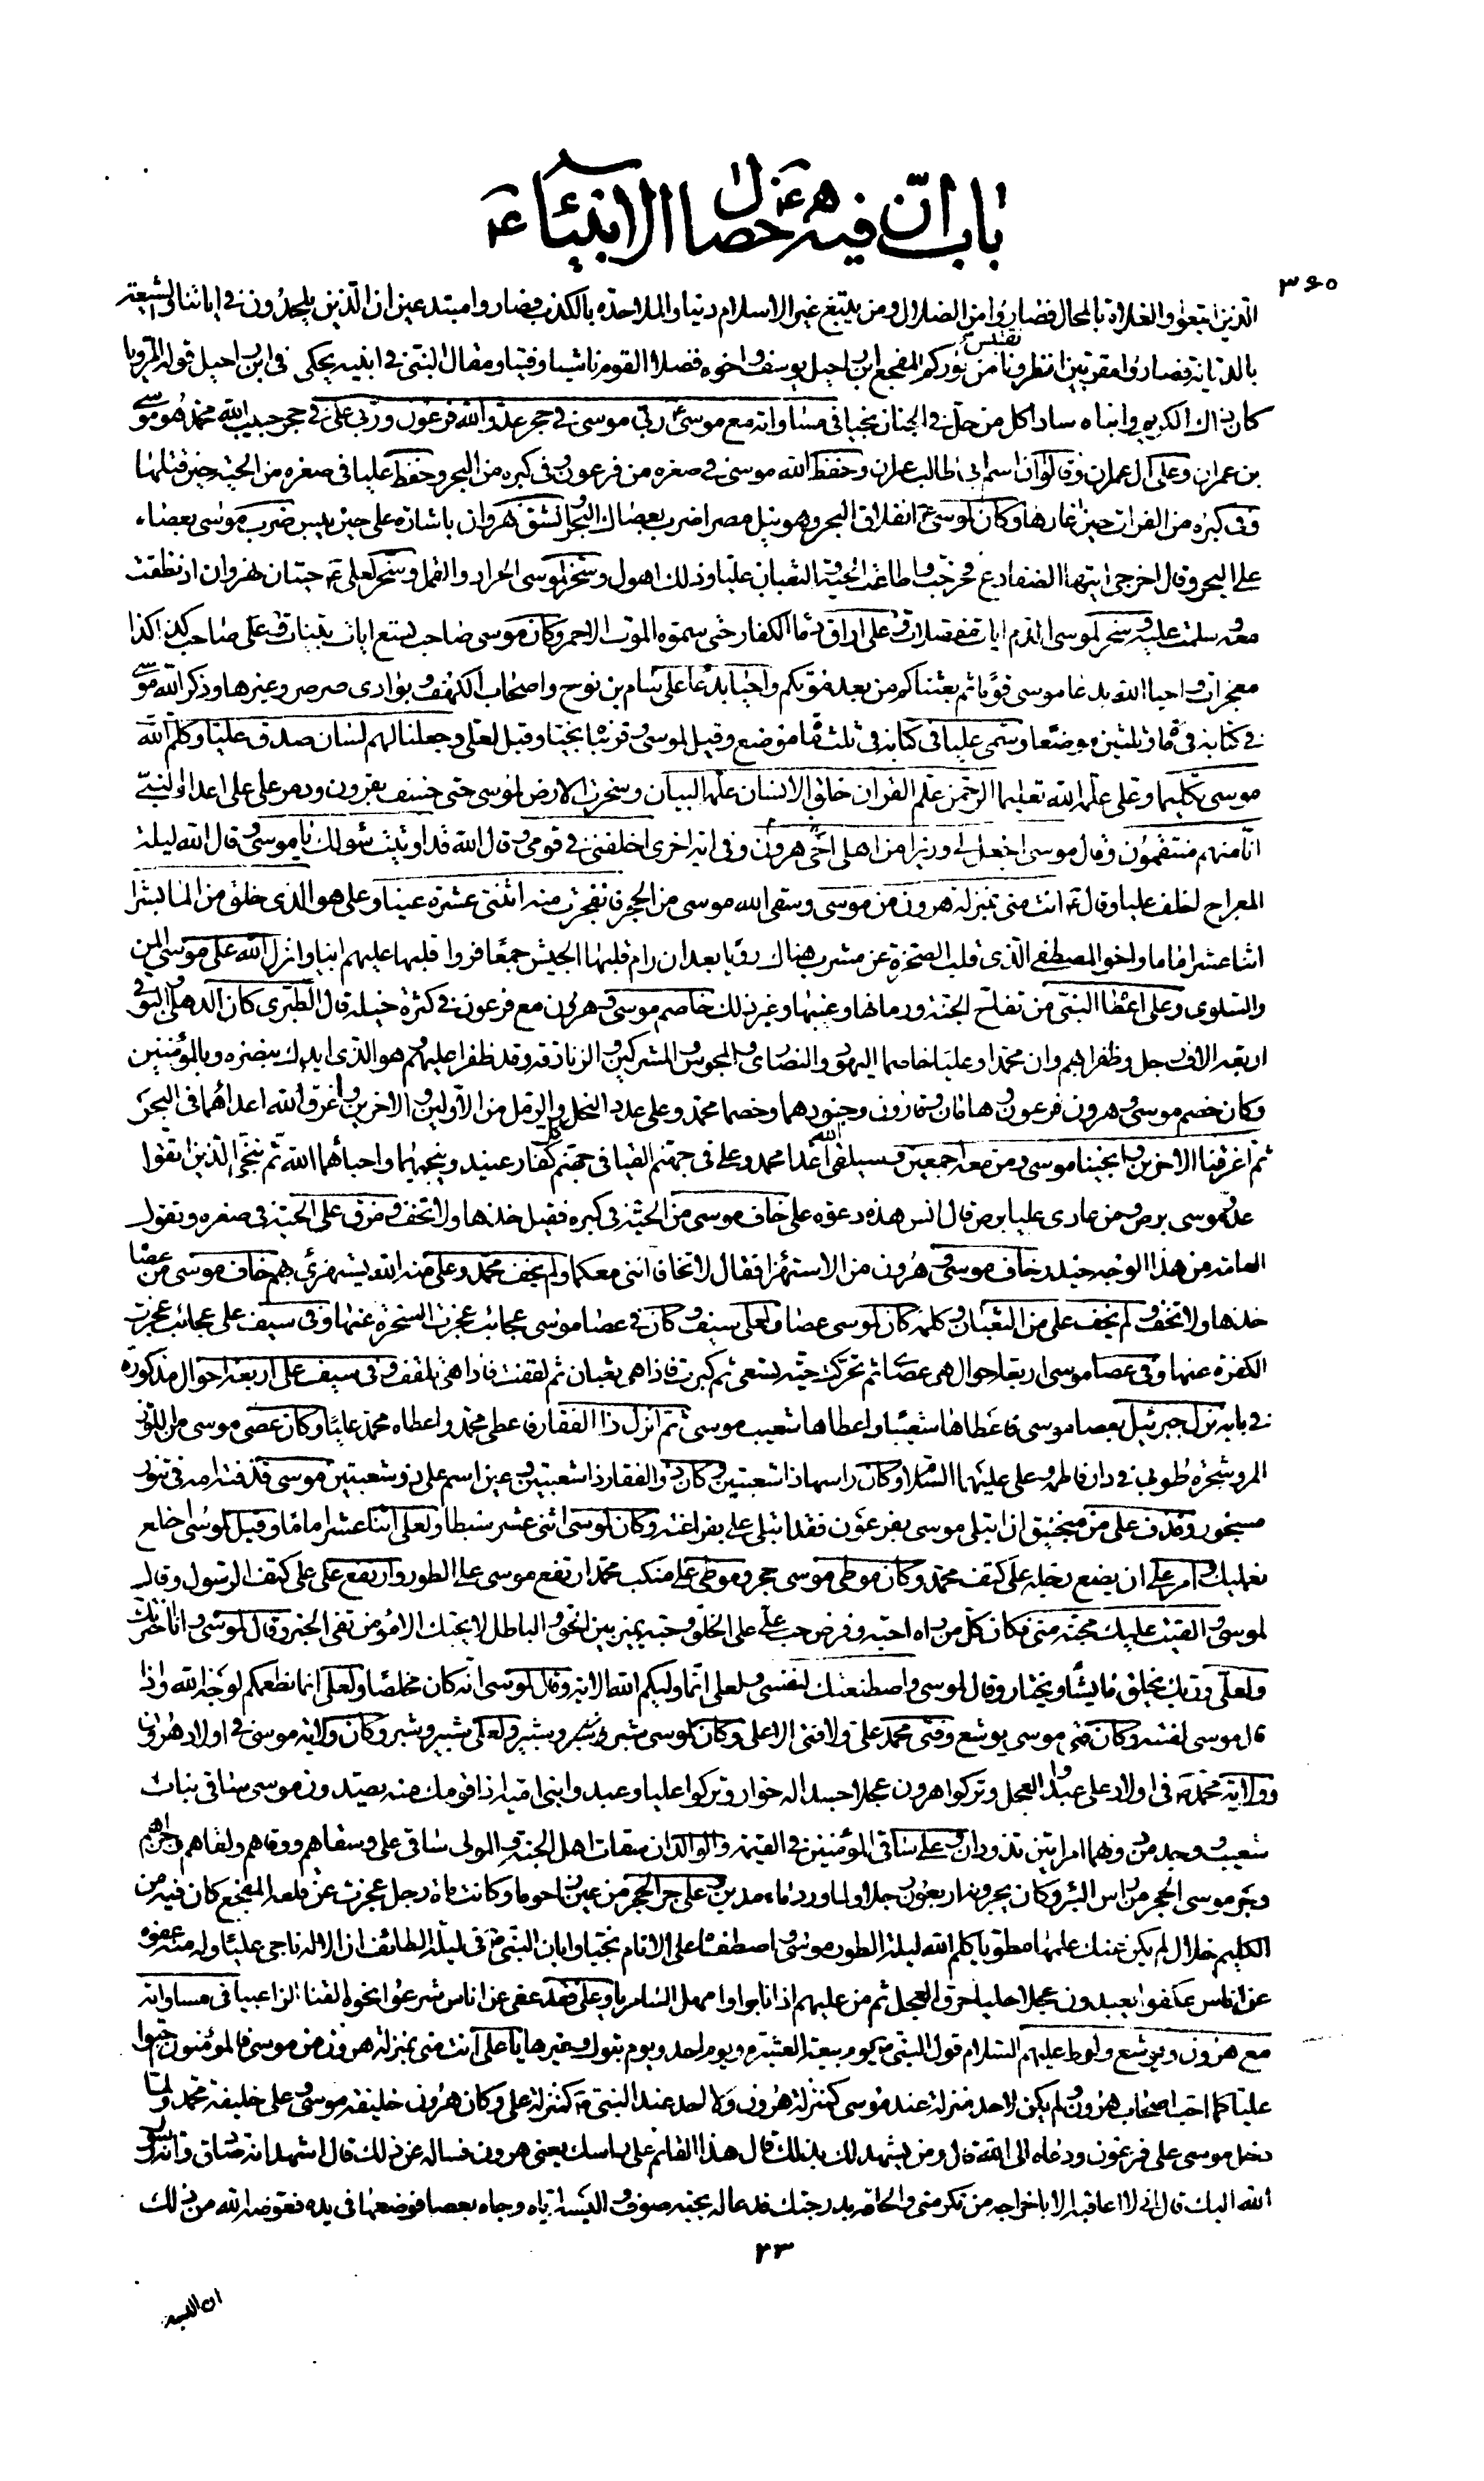 باب ان فيه خصال الانبياء ع
٣٦٥
الذين اتبعوا والغلاة بالمحال فصاروا من الضلال ومن يبتغ غير الاسلام دينا والملاحدة بالكذب فصاروا مبتدعين ان الذين يلحدون في اياتنا والشيعة
بالديانة فصاروا مقربين انظرونا نقتبس من نوركم المفجع ابن راحيل يوسف واخوه فضلا القوم ناشيا وفتيا ومقال النبي في ابنيه يحكي في ابن راحيل قوله المرويا
كان ذاك الكريم وابناه سادا كل من حل في الجنان نجيا في مساواته مع موسى ع ربي موسى في حجر عدو الله فرعون وربي علي في حجر حبيب الله محمد هو موسى
بن عمران وعلي ال عمران وقالوا ان اسم ابي طالب عمران وحفظ الله موسى في صغره من فرعون وفي كبره من البحر وحفظ عليا في صغره من الحية حين قتلها
وفي كبره من الفرات حين اغارها وكان لموسى ع انفلاق البحر وهو نيل مصر اضرب بعصاك البحر وانشق نهروان باشارة علي حين يبس ضرب موسى بعصاه
على البحر وقال اخرجي ايتها الضفادع فخرجت واطاعت الحية والثعبان عليا وذلك اهول وسخر لموسى الجراد والقمل وسخر لعلي ع حيتان نهروان اذ نطقت
معه وسلمت عليه وسخر لموسى الدم ايات مفصلات وعلي اراق دماء الكفار حتى سموه الموت الاحمر وكان موسى صاحب تسع ايات بينات وعلي صاحب كذا كذا
معجزات واحيا الله بدعاء موسى قوما ثم بعثناكم من بعد موتكم واحيا بدعاء علي سام بن نوح واصحاب الكهف وبوادي صرصر وغيرها وذكر الله موسى
في كتابه في مائة وثلثين موضعا وسمى عليا في كتابه في ثلثمائة موضع وقيل لموسى وقربناه نجيا وقيل لعلي وجعلنا لهم لسان صدق عليا وكلم الله
موسى تكليما وعلي علمه الله تعليما الرحمن علم القران خلق الانسان علمه البيان وسخرت الارض لموسى حتى خسف بقرون ودمر علي على اعداء النبي
انا منهم منتقمون وقال موسى اجعل لي وزيرا من اهلي اخي هرون وفي اية اخرى اخلفني في قومي وقال الله قد اوتيت سؤلك يا موسى وقال الله ليلة
المعراج لخلف عليا وقال ع انت مني بمنزلة هرون من موسى وسقى الله موسى من الحجر فانفجرت منه اثنتي عشرة عينا وعلي هو الذي خلق من الماء بشرا
اثنا عشر اماما واخو المصطفى الذي قلب الصخرة عن مشرب هناك رويا بعد ان رام قلبها الجيش جمعا فروا قلبها عليهم ابيا وانزل الله على موسى المن
والسلوى وعلي اعطاه النبي من تفاح الجنة ورمانها وعنبها وغير ذلك خاصم موسى وهرون مع فرعون في كثرة خيله قال الطبري كان الدهاليون
اربعة الاف رجل وظفرا بهم وان محمدا وعليا خاصما اليهود والنصارى والمجوس والمشركين والزنادقة وقد ظفرا عليهم هو الذي ايدك بنصره وبالمؤمنين
وكان خصم موسى وهرون فرعون وهامان وقارون وجنودهما وخصماء محمد وعلي عدد النحل والرمل من الاولين والاخرين واغرق الله اعداءهما في البحر
ثم اغرقنا الاخرين وانجينا موسى ومن معه اجمعين وسيلقي الله اعداء محمد وعلي في جهنم القيا في جهنم كل كفار عنيد وينجيهما واحباءهما الله ثم ننجي الذين اتقوا
عدو موسى برص ومن عادى عليا برص قال انس هذه دعوة علي خاف موسى من الحية في كبره فقيل خذها ولا تخف ومزق علي الحية في صغره وتقول
العامة من هذا الوجه حيدر خاف موسى وهرون من الاستهزاء فقال لا تخافا انني معكما ولم يخف محمد وعلي منه الله يستهزئ بهم خاف موسى من عصاه
خذها ولا تخف ولم يخف علي من الثعبان وكلمه كان لموسى عصا ولعلي سيف وكان في عصا موسى عجائب عجزت السحرة عنها وفي سيف علي عجائب عجزت
الكفرة عنها وفي عصا موسى اربعة احوال هي عصاي ثم تحركت حية تسعى ثم كبرت فاذا هي ثعبان ثم لقفت فاذا هي تلقف وفي سيف علي اربعة احوال مذكورة
في بابه نزل جبرئيل بعصا موسى فاعطاها شعيبا واعطاها شعيب موسى ثم انزل ذا الفقار فاعطى محمد واعطاه محمد عليا وكان عصى موسى من اللوز
المر وشجرة طوبى في دار فاطمة وعلي عليهما السلام وكان راسها ذا شعبتين وكان ذو الفقار ذا شعبتين وعين اسم علي ذو شعبتين موسى قذفته امه في تنور
مسجور وقذف علي من منجنيق ان ابتلي موسى بفرعون فقد ابتلي علي بفراعنة وكان لموسى اثنى عشر سبطا ولعلي اثنا عشر اماما وقيل لموسى اخلع
نعليك وامر علي ان يضع رجله على كتف محمد وكان موطئ موسى حجر وموطئ علي منكب محمد ارتفع موسى على الطور وارتفع علي على كتف الرسول وقال
لموسى والقيت عليك محبة مني فكان كل من راه احبه وفرض حب علي على الخلق وحبه يميز بين الحق والباطل لا يحبك الا مؤمن تقي الخبر وقال لموسى وانا اخترتك
ولعلي وربك يخلق ما يشاء ويختار وقال لموسى واصطنعتك لنفسي ولعلي انما وليكم الله الاية وقال لموسى انه كان مخلصا ولعلي انما نطعمكم لوجه الله واذا
قال موسى لفتيه وكان فتى موسى يوشع وفتى محمد علي ولا فتى الا علي وكان لموسى شبر وشبير ولعلي شبير وشبر وكان ولاية موسى في اولاد هرون
وولاية محمد ص في اولاد علي عبدوا العجل وتركوا هرون عجلا جسدا له خوار وتركوا عليا وعبدوا بني امية اذا قومك منه يصدون موسى ساقي بنات
شعيب ووجد من دونهم امراتين تذودان وعلي ساقي المؤمنين في القيمة والوالدان سقات اهل الجنة والمولى ساقي علي وسقاهم ووقاهم ولقاهم وجزاهم
وجر موسى الحجر من راس البئر وكان يجرونه اربعون رجلا ولما ورد ماء مدين وعلي جر الحجر من عين زاحوما وكانت مائة رجل عجزت عن قلعه المفجع كان فيه من
الكليم خلال لم يكن عنك علمها مطويا كلم الله ليلة الطور موسى واصطفاه على الانام نجيا وابان النبي ص في ليلة الطائف ان الاله ناجى عليا وله منه عفوه
عن اناس عكفوا يعبدون عجلا حليا حرق العجل ثم من عليهم اذ انابوا وامهل السامريا وعلي فقد عفى عن اناس شرعوا نحوه القنا الزاعبيا في مساواته
مع هرون ويوشع ولوط عليهم السلام قول النبي ص يوم بيعة العشيرة ويوم احد ويوم تبوك وغيرها يا علي انت مني بمنزلة هرون من موسى فالمؤمنون احبوا
عليا كما احب اصحاب هرون ولم يكن لاحد منزلة عند موسى كمنزلة هرون ولا لاحد عند النبي ص كمنزلة علي وكان هرون خليفة موسى وعلي خليفة محمد ولما
دخل موسى على فرعون ودعاه الى الله قال ومن يشهد لك بذلك قال هذا القائم على راسك يعني هرون فساله عن ذلك قال اشهد انه صادق وانه رسول
الله اليك قال اني لا اعاقبه الا باخراجه من تكرمتي والحاقه بدرجتك فدعا له بجبة صوف والبسه اياه وجاء بعصا فوضعها في يده فعوضه الله من ذلك
٢٣
ان البسه